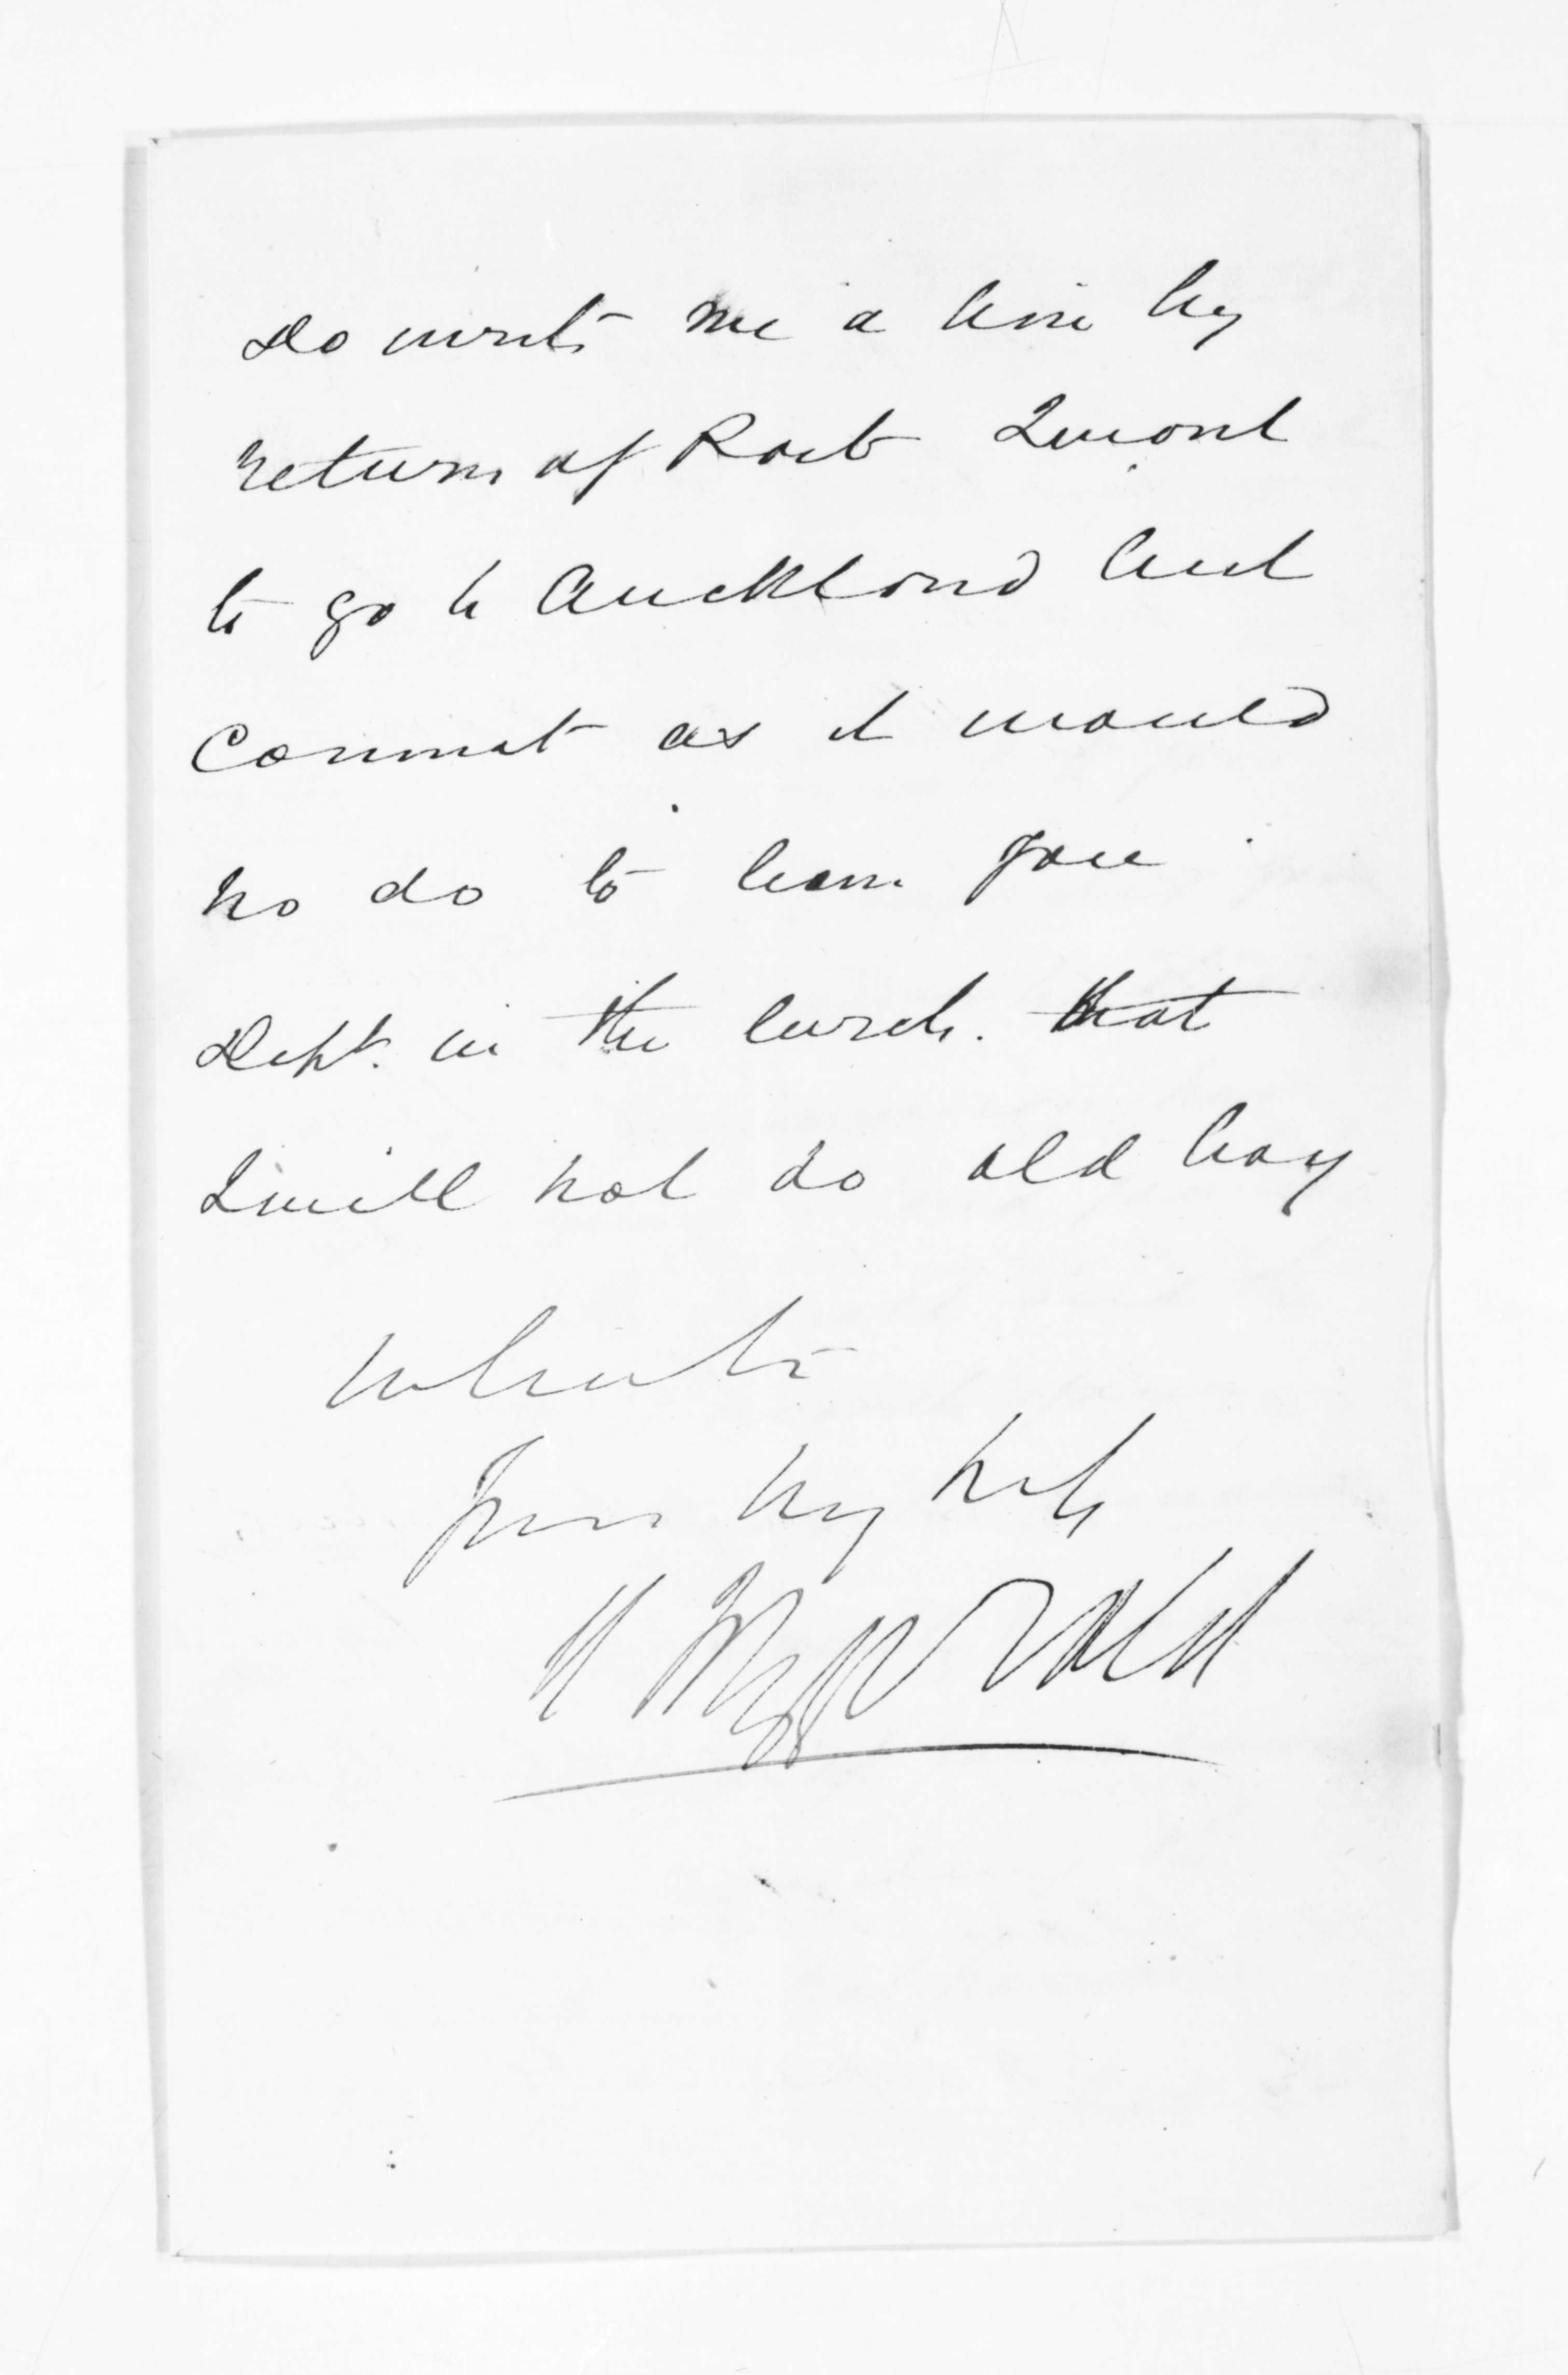 Do write me a line by
return of Post I want
to go to Auckland but
Cannot as it would
no do to leave your
Dept. in the lurch. that
I will not do old boy
In haste
Yours